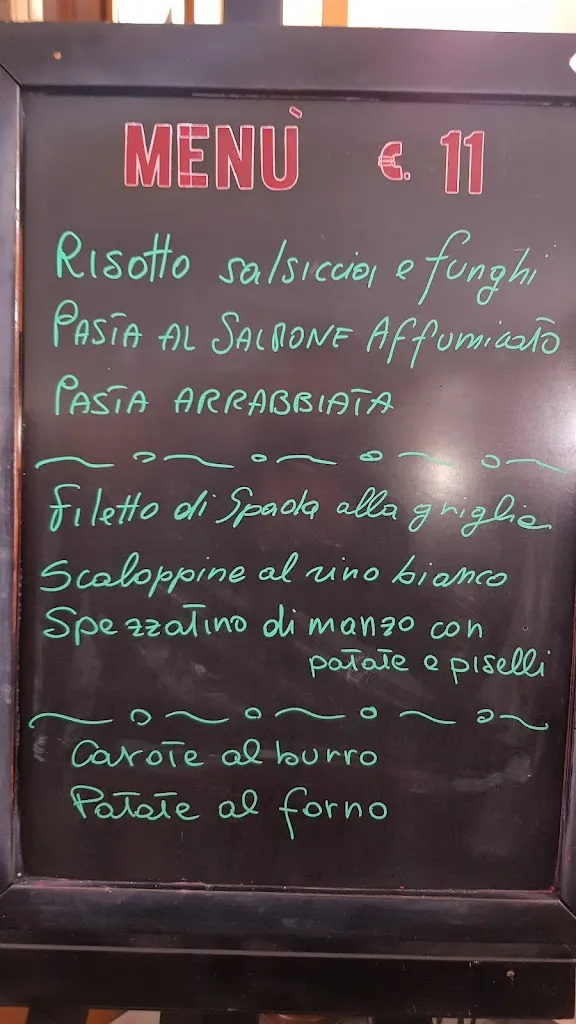 MENÙ €. 11
RISOTTO salsiccia e funghi
PASTA AL SALMONE Affumicato
PASTA ARRABBIATA
filetto di Spada alla griglia
Scaloppine al vino bianco
Spezzatino di manzo con
patate e piselli
Carote al burro
Patate al forno